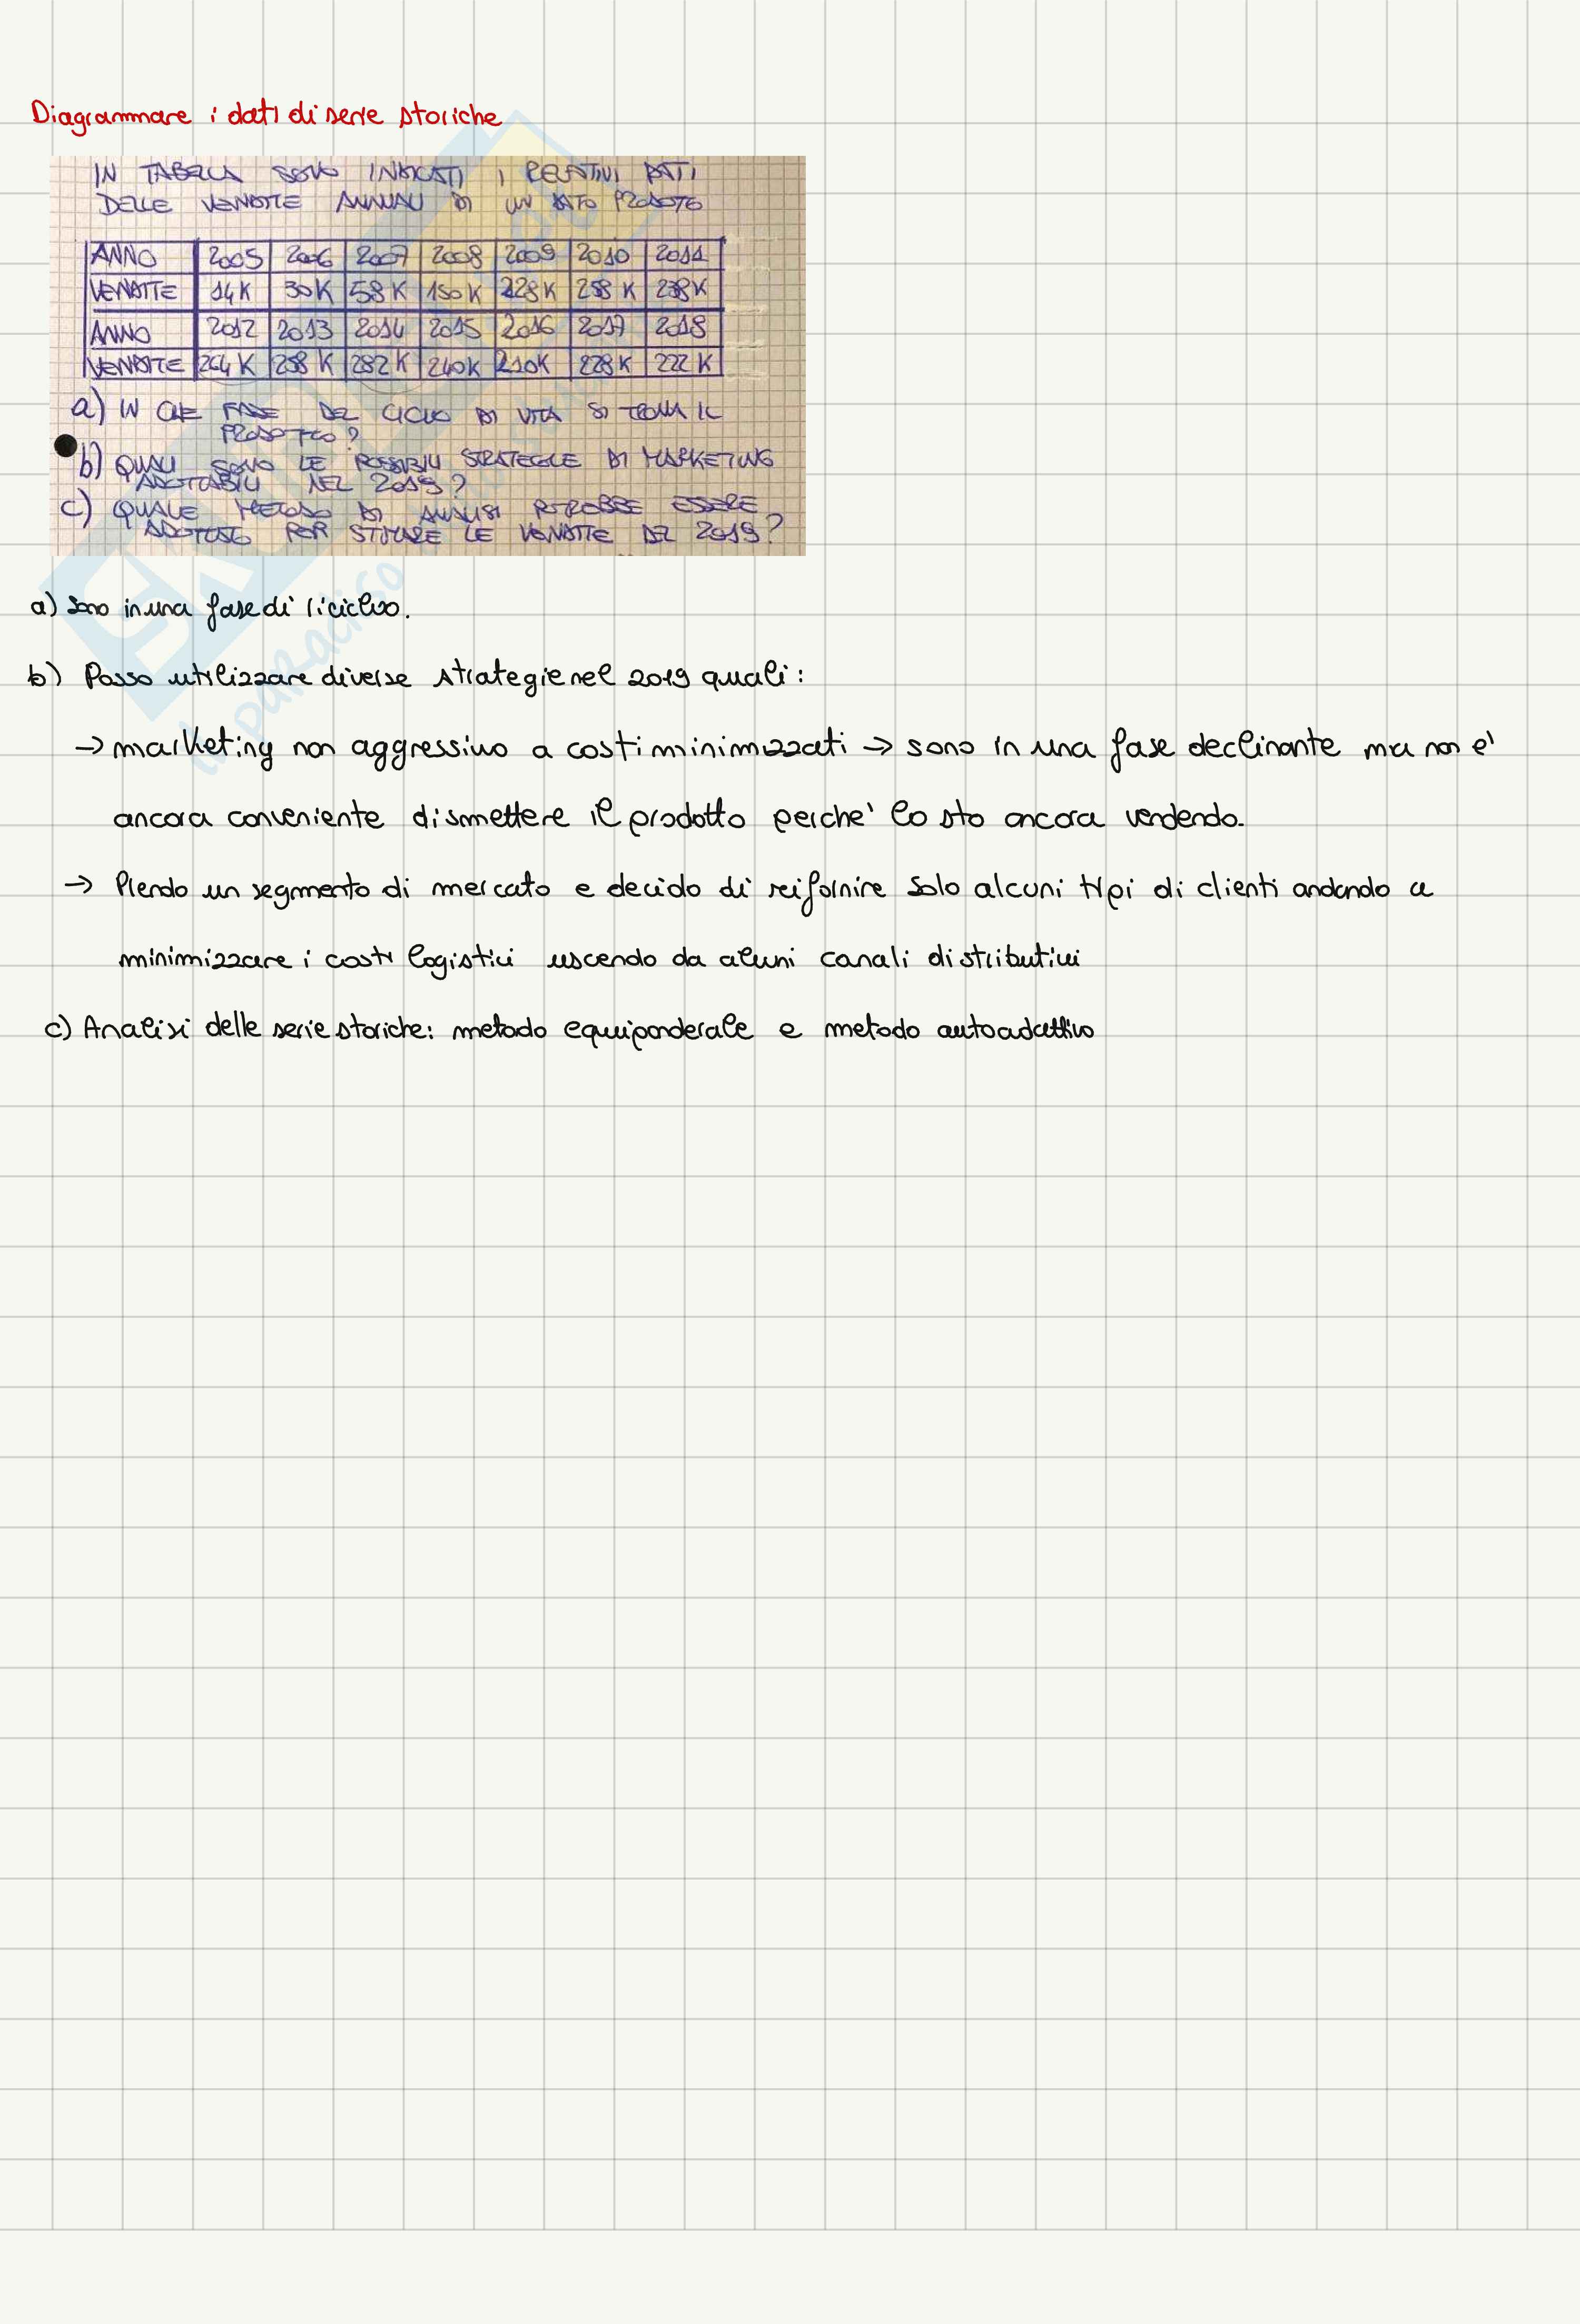 Diagrammare i dati di serie storiche
IN TABELLA SONO INDICATI I RELATIVI DATI
DELLE VENDITE ANNUALI DI UN DATO PRODOTTO
ANNO 2005 2006 2007 2008 2009 2010 2011
VENDITE 14K 30K 58K 150K 228K 258K 238K
ANNO 2012 2013 2014 2015 2016 2017 2018
VENDITE 264K 258K 282K 240K 210K 228K 222K
a) IN CHE FASE DEL CICLO DI VITA SI TROVA IL
PRODOTTO?
b) QUALI SONO LE POSSIBILI STRATEGIE DI MARKETING
ADOTTABILI NEL 2019?
c) QUALE METODO DI ANALISI POTREBBE ESSERE
ADOTTATO PER STIMARE LE VENDITE DEL 2019?
a) Sono in una fase di riciclo.
b) Posso utilizzare diverse strategie nel 2019 quali:
→ marketing non aggressivo a costi minimizzati → sono in una fase declinante ma non e'
ancora conveniente dismettere il prodotto perche' lo sto ancora vendendo.
→ Prendo un segmento di mercato e decido di rifornire solo alcuni tipi di clienti andando a
minimizzare i costi logistici uscendo da alcuni canali distributivi
c) Analisi delle serie storiche: metodo equiponderale e metodo autoadattivo
il paradiso